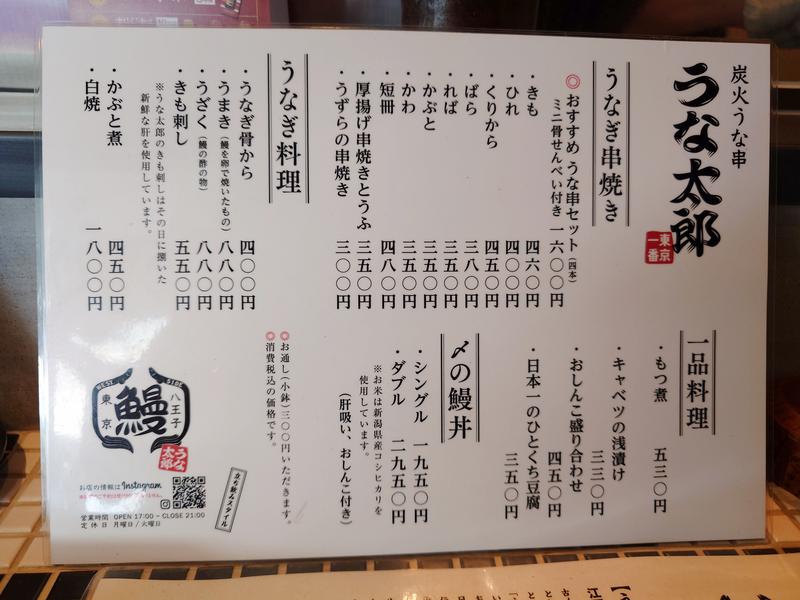 炭火うな串
うな太郎
東京一番
うなぎ串焼き
◎おすすめ うな串セット(四本)
ミニ骨せんべい付き 一六〇〇円
・きも 四六〇円
・ひれ 四〇〇円
・くりから 四五〇円
・ばら 三八〇円
・れば 三五〇円
・かぶと 三五〇円
・かわ 三五〇円
・短冊 四八〇円
・厚揚げ串焼きとうふ 三五〇円
・うずらの串焼き 三〇〇円
うなぎ料理
・うなぎ骨から 四〇〇円
・うまき(鰻を卵で焼いたもの) 八八〇円
・うざく(鰻の酢の物) 八八〇円
・きも刺し 五五〇円
※うな太郎のきも刺しはその日に捌いた
新鮮な肝を使用しています。
・かぶと煮 四五〇円
・白焼 一八〇〇円
一品料理
・もつ煮 五三〇円
・キャベツの浅漬け 三三〇円
・おしんこ盛り合わせ 四五〇円
・日本一のひとくち豆腐 三五〇円
〆の鰻丼
・シングル 一九五〇円
・ダブル 二九五〇円
※お米は新潟県産コシヒカリを
使用しています。
(肝吸い、おしんこ付き)
◎お通し(小鉢)三〇〇円いただきます。
◎消費税込の価格です。
WEST SIDE
八王子
鰻
東京
うな太郎
立ち飲みスタイル
お店の情報はInstagram
営業時間 OPEN 17:00 ~ CLOSE 21:00
定休日 月曜日/火曜日